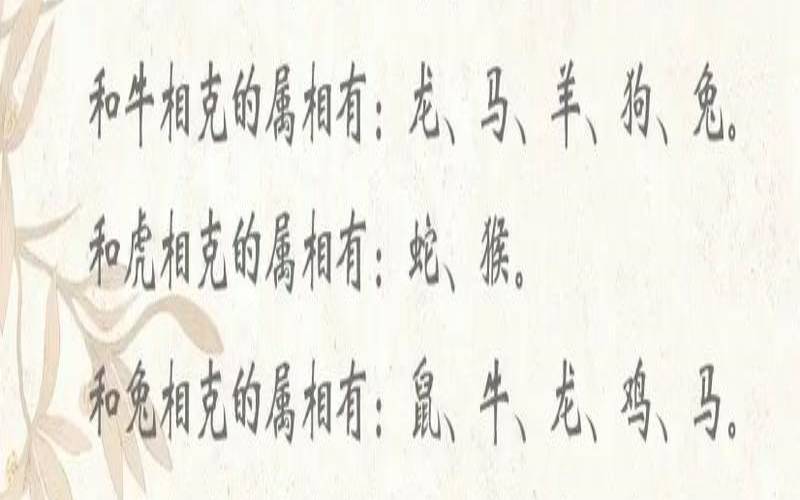 和牛相克的属相有：龙、马、羊、狗、兔。
和虎相克的属相有：蛇、猴。
和兔相克的属相有：鼠、牛、龙、鸡、马。